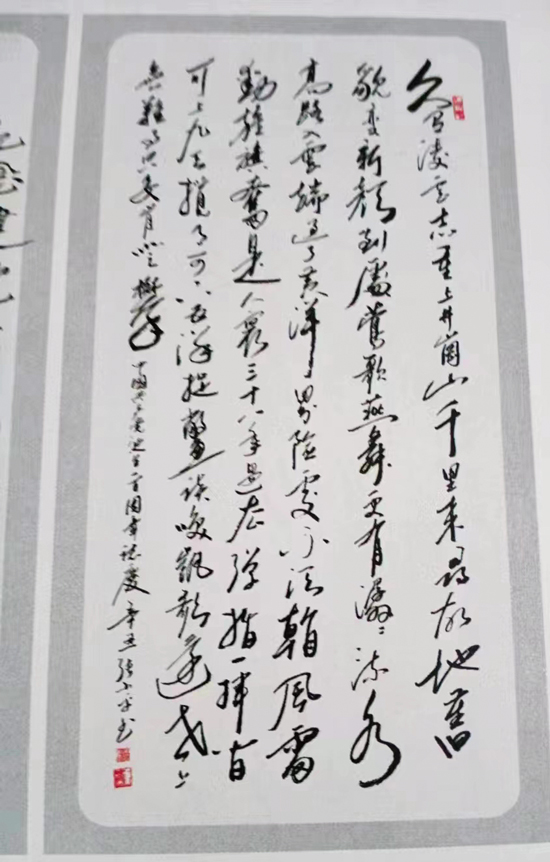 久有凌云志重上井崗山千里来尋故地舊
貌变新颜到處莺歌燕舞更有潺〻流水
高路入雲端过了黄洋界险處不须看風雷
動旌旗奮是人寰三十八年过去弹指一挥间
可上九天揽月可下五洋捉鱉谈笑凯歌还世上
無難事只要肯登攀 中國共产党建立一百周年誌慶 辛丑 书